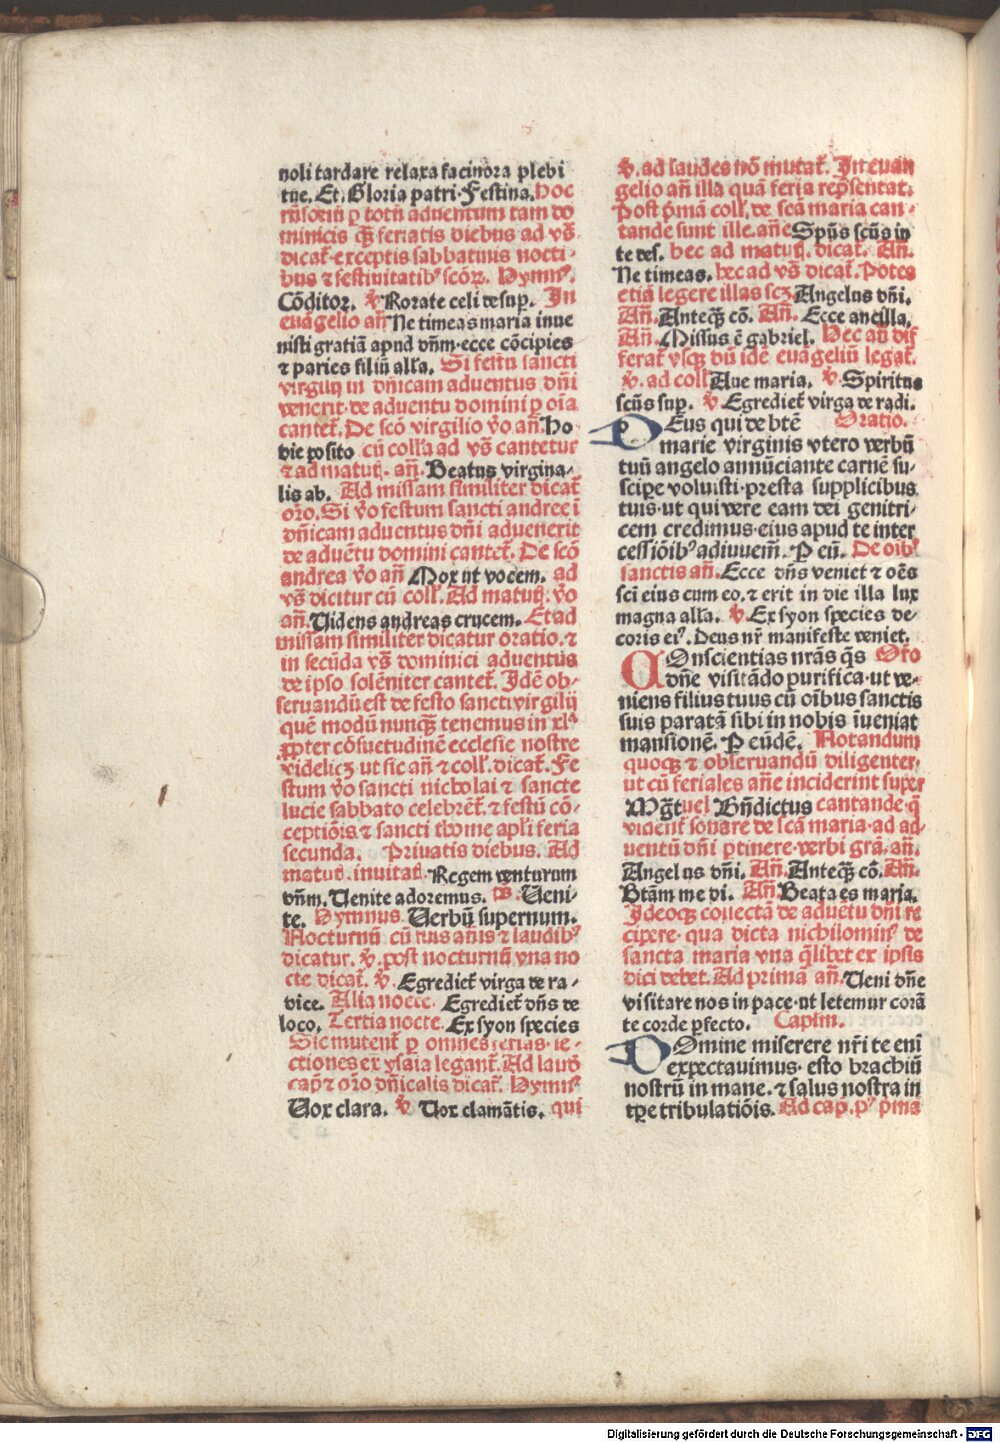 noli tardare relaxa facinora plebi
tue. Et. Gloria patri. Festina. hoc
rñsoriũ ꝑ totũ aduentum tam do
minicis qꝫ feriatis diebus ad vs̃
dicat᷑ exceptis sabbatinis nocti-
bus ⁊ festiuitatibꝰ scõꝝ. Hymnꝰ.
Cõditor. ℣ Rorate celi desup̃. In
euãgelio añ Ne timeas maria inue
nisti gratiã apud dñm ecce cõcipies
⁊ paries filiũ alĺa. Si festũ sancti
virgilij in dñicam aduentus dñi
venerit de aduentu domini ꝑ oĩa
cantet᷑. De scõ virgilio ṽo añ. Ho
die posito cũ colĺa ad vs̃ cantetur
⁊ ad matut̃. añ. Beatus virgina-
lis ab. Ad missam similiter dicat᷑
oro. Si ṽo festum sancti andree ĩ
dñicam aduentus dñi aduenerit
de aduẽtu domini cantet᷑. De scõ
andrea ṽo añ Mox ut vocem. ad
vs̃ dicitur cũ coll̃. Ad matut̃. ṽo
añ. Uidens andreas crucem. Et ad
missam similiter dicatur oratio. ⁊
in secũda vs̃ dominici aduentus
de ipso solẽniter cantet᷑. Idẽ ob-
seruandũ est de festo sancti virgilij
quẽ modũ nunqꝫ tenemus in xlᵃ
ꝓpter cõsuetudinẽ ecclesie nostre
videlicꝫ ut sic añ ⁊ coll̃. dicat᷑. Fe
stum ṽo sancti nicholai ⁊ sancte
lucie sabbato celebrẽt᷑. ⁊ festũ cõ-
ceptiõis ⁊ sancti thome apĺi feria
secunda. Priuatis diebus. Ad
matut̃. inuitat̃. Regem venturum
dñm. Uenite adoremus. ps̃. Ueni-
te. Hymnus. Uerbũ supernum.
Nocturnũ cũ suis añis ⁊ laudibꝰ
dicatur. ℣. post nocturnũ vna no
cte dicat᷑. ℣. Egrediet᷑ virga de ra-
dice. Alia nocte. Egrediet᷑ dñs de
loco. Tertia nocte. Ex syon species
Sic mutent᷑ ꝑ omnes ferias. le-
ctiones ex ysaia legant᷑. Ad laud̃
cap̃ ⁊ oro dñicalis dicat᷑. Hymnꝰ
Uox clara. ℣ Uox clamãtis. qui
℣. ad laudes nõ mutat᷑. In euan
gelio añ illa quã feria rep̃sentat.
Post p̃mã coll̃. de scã maria can-
tande sunt ille. añe Spũs scũs in
te des. hec ad matut̃. dicat᷑. Añ.
Ne timeas. hec ad vs̃ dicat᷑. Potes
etiã legere illas scꝫ Angelus dñi.
Añ. Anteqꝫ cõ. Añ. Ecce ancilla.
Añ. Missus ẽ gabriel. Hec añ dif
ferat᷑ vsqꝫ dũ idẽ euãgeliũ legat᷑.
℣. ad coll̃ Aue maria. ℣. Spiritus
scũs sup̃. ℣. Egrediet᷑ virga de radi.
DEus qui de btẽ Oratio.
marie virginis vtero verbũ
tuũ angelo annũciante carnẽ su-
scipe voluisti. presta supplicibus
tuis. ut qui vere eam dei genitri-
cem credimus. eius apud te inter
cessiõibꝰ adiuuem̃. P eũ. De oĩbꝰ
sanctis añ. Ecce dñs veniet ⁊ oẽs
sci eius cum eo. ⁊ erit in die illa lux
magna alĺa. ℣. Ex syon species de-
coris eiꝰ. Deus nr̃ manifeste veniet.
COnscientias nrãs q̃s Oro
dñe visitãdo purifica. ut ve-
niens filius tuus cũ oĩbus sanctis
suis paratã sibi in nobis ĩueniat
mansionẽ. P eũdẽ. Notandum
quoqꝫ ⁊ obseruandũ diligenter.
ut cũ feriales añe inciderint super
Mg̃t uel Bñdictus cantande. q̃
vident᷑ sonare de scã maria. ad ad-
uentũ dñi ꝑtinere. verbi grã. añ.
Angelus dñi. Añ. Anteqꝫ cõ. Añ.
Btãm me di. Añ. Beata es maria.
Ideoqꝫ collectã de aduẽtu dñi re
cipere. qua dicta nichilominꝰ de
sancta maria vna q̃libet ex ipsis
dici debet. Ad primã añ. Ueni dñe
visitare nos in pace. ut letemur corã
te corde ꝑfecto. Caplm̃.
DOmine miserere nr̃i te eni
expectauimus. esto brachiũ
nostrũ in mane. ⁊ salus nostra in
tꝑe tribulatiõis. Ad cap̃. pꝰ p̃ma
Digitalisierung gefördert durch die Deutsche Forschungsgemeinschaft - DFG